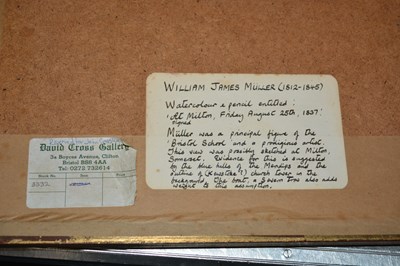 WILLIAM JAMES MULLER (1812-1845)
Watercolour & pencil entitled:
'At Milton, Friday August 25th, 1837.'
signed
Müller was a principal figure of the
Bristol School and a prodigious artist.
This view was possibly sketched at Milton,
Somerset. Evidence for this is suggested
by the blue hills of the Mendips and the
outline of (Kewstoke?) church tower in the
background. The boat, a Severn Trow also adds
weight to this assumption.
David Cross Gallery
3a Boyces Avenue, Clifton
Bristol BS8 4AA
Tel: 0272 732614
Stock No.
Size